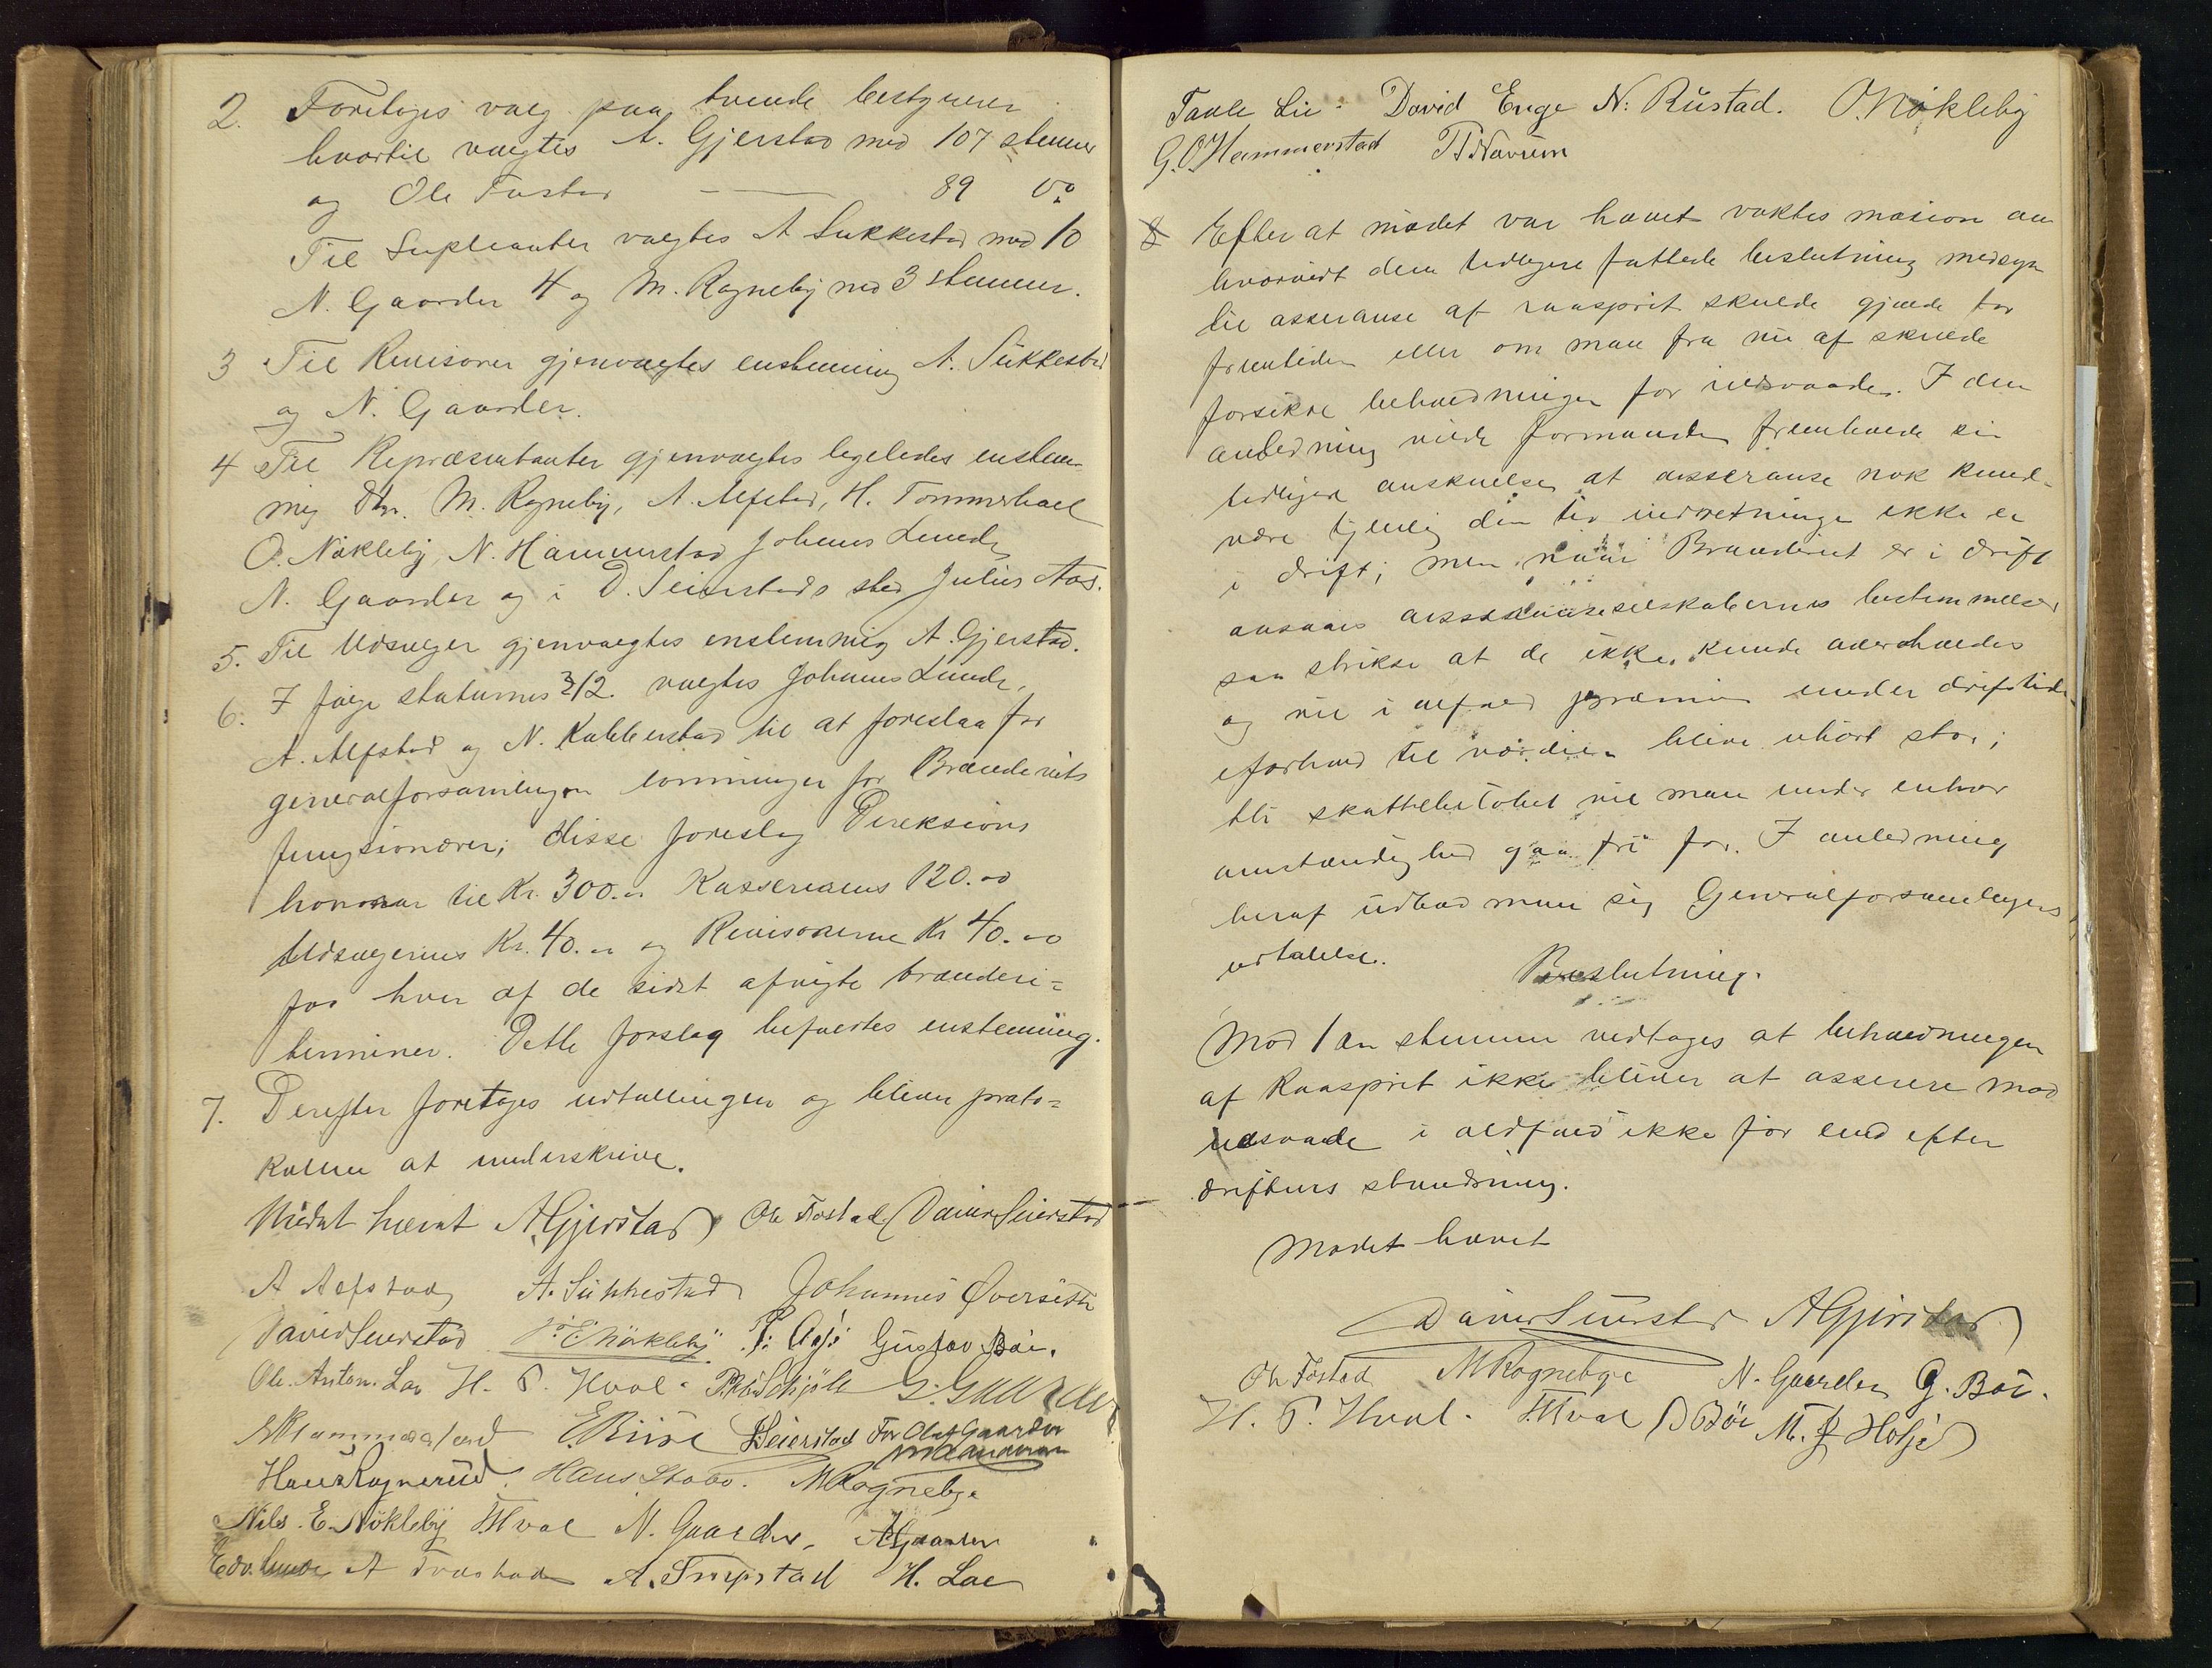 2. Foretoges valg paa tvende bestyrere
hvortil valgtes A. Gjerstad med 107 stemmer
og Ole Fostad — 89 do
Til Supleanter valgtes A Sukkestad med 10
N. Gaarder 4 og M. Rogneby med 3 stemmer.
3 Til Revisorer gjenvalgtes enstemmig A. Sukkestad
og N. Gaarder.
4 Til Repræsentanter gjenvalgtes ligeledes enstem-
mig Dhr. M. Rogneby, A. Alfstad, H. Tommerhael
O. Nökleby, N. Hammerstad Johannes Lunde
N. Gaarder og i D. Seierstads sted Julius Aas.
5. Til Udsælger gjenvalgtes enstemmig A. Gjerstad.
6. I følge statuternes § 12. valgtes Johannes Lunde,
A. Alfstad og N. Kabberstad til at foreslaa for
generalforsamlingen lønninger for Brænderiets
fungsionærer; disse foreslog Direksions
honorar til Kr. 300.00 Kassererens 120.00
Udsælgerens Kr. 40.00 og Revisorerne Kr 40.00
for hver af de sidst afvigte brænderi=
terminer. Dette forslag bifaldtes enstemmig.
7. Derefter foretoges udtallingen og bliver proto=
kollen at underskrive.
Mødet hævet AGjerstad Ole Fostad David Seierstad
A Alfstad A. Sukkestad Johannes Øverseth
David Seierstad E. Nökleby Gustav Böe.
Ole. Anton. Lae H. P. Hval. G. Gaarder
E. Riise Seierstad For Olaf Gaarder
Hans Rognerud. Hans Stabo. MRognebye
Nils. E. Nökleby Hval N. Gaarder. AGaarder
Edv. Lunde A A. H. Lae
Taale Lie David Enge N. Rustad. O. Nökleby
G. O. Hammerstad
8 Efter at mødet var hævet vaktes mosion om
hvorvidt den tidligere fattede beslutning medsyn
til asseranse af raasprit skulde gjælde for
fremtiden eller om man fra nu af skulde
forsikre beholdningen for ildsvaade. I den
anledning vilde formanden fremholde sin
tidligere anskuelse at asseranse nok kunde
være tjenlig den tid indretningen ikke er
i drift; men naar Brænderiet er i drift
ansaaes assuranseselskabernes bestemmelser
saa strikse at de ikke kunde overholdes
og vil i alfald præmien under driftstiden
i forhold til værdien blive uhørt stor;
thi skattebeløbet vil man under enhver
omstændighed gaa fri for. I anledning
heraf udbad man sig Generalforsamlingens
udtalelse.
Beslutning.
Mod 1 en stemme vedtoges at beholdningen
af Raasprit ikke bliver at asserere mod
ildsvaade i aldfald ikke før end efter
driftens standsning.
Mødet hævet
David Seierstad AGjerstad
Ole Fostad MRognebye N. Gaarder G. Böe.
H. P. Hval. Hval Böe M. Holje